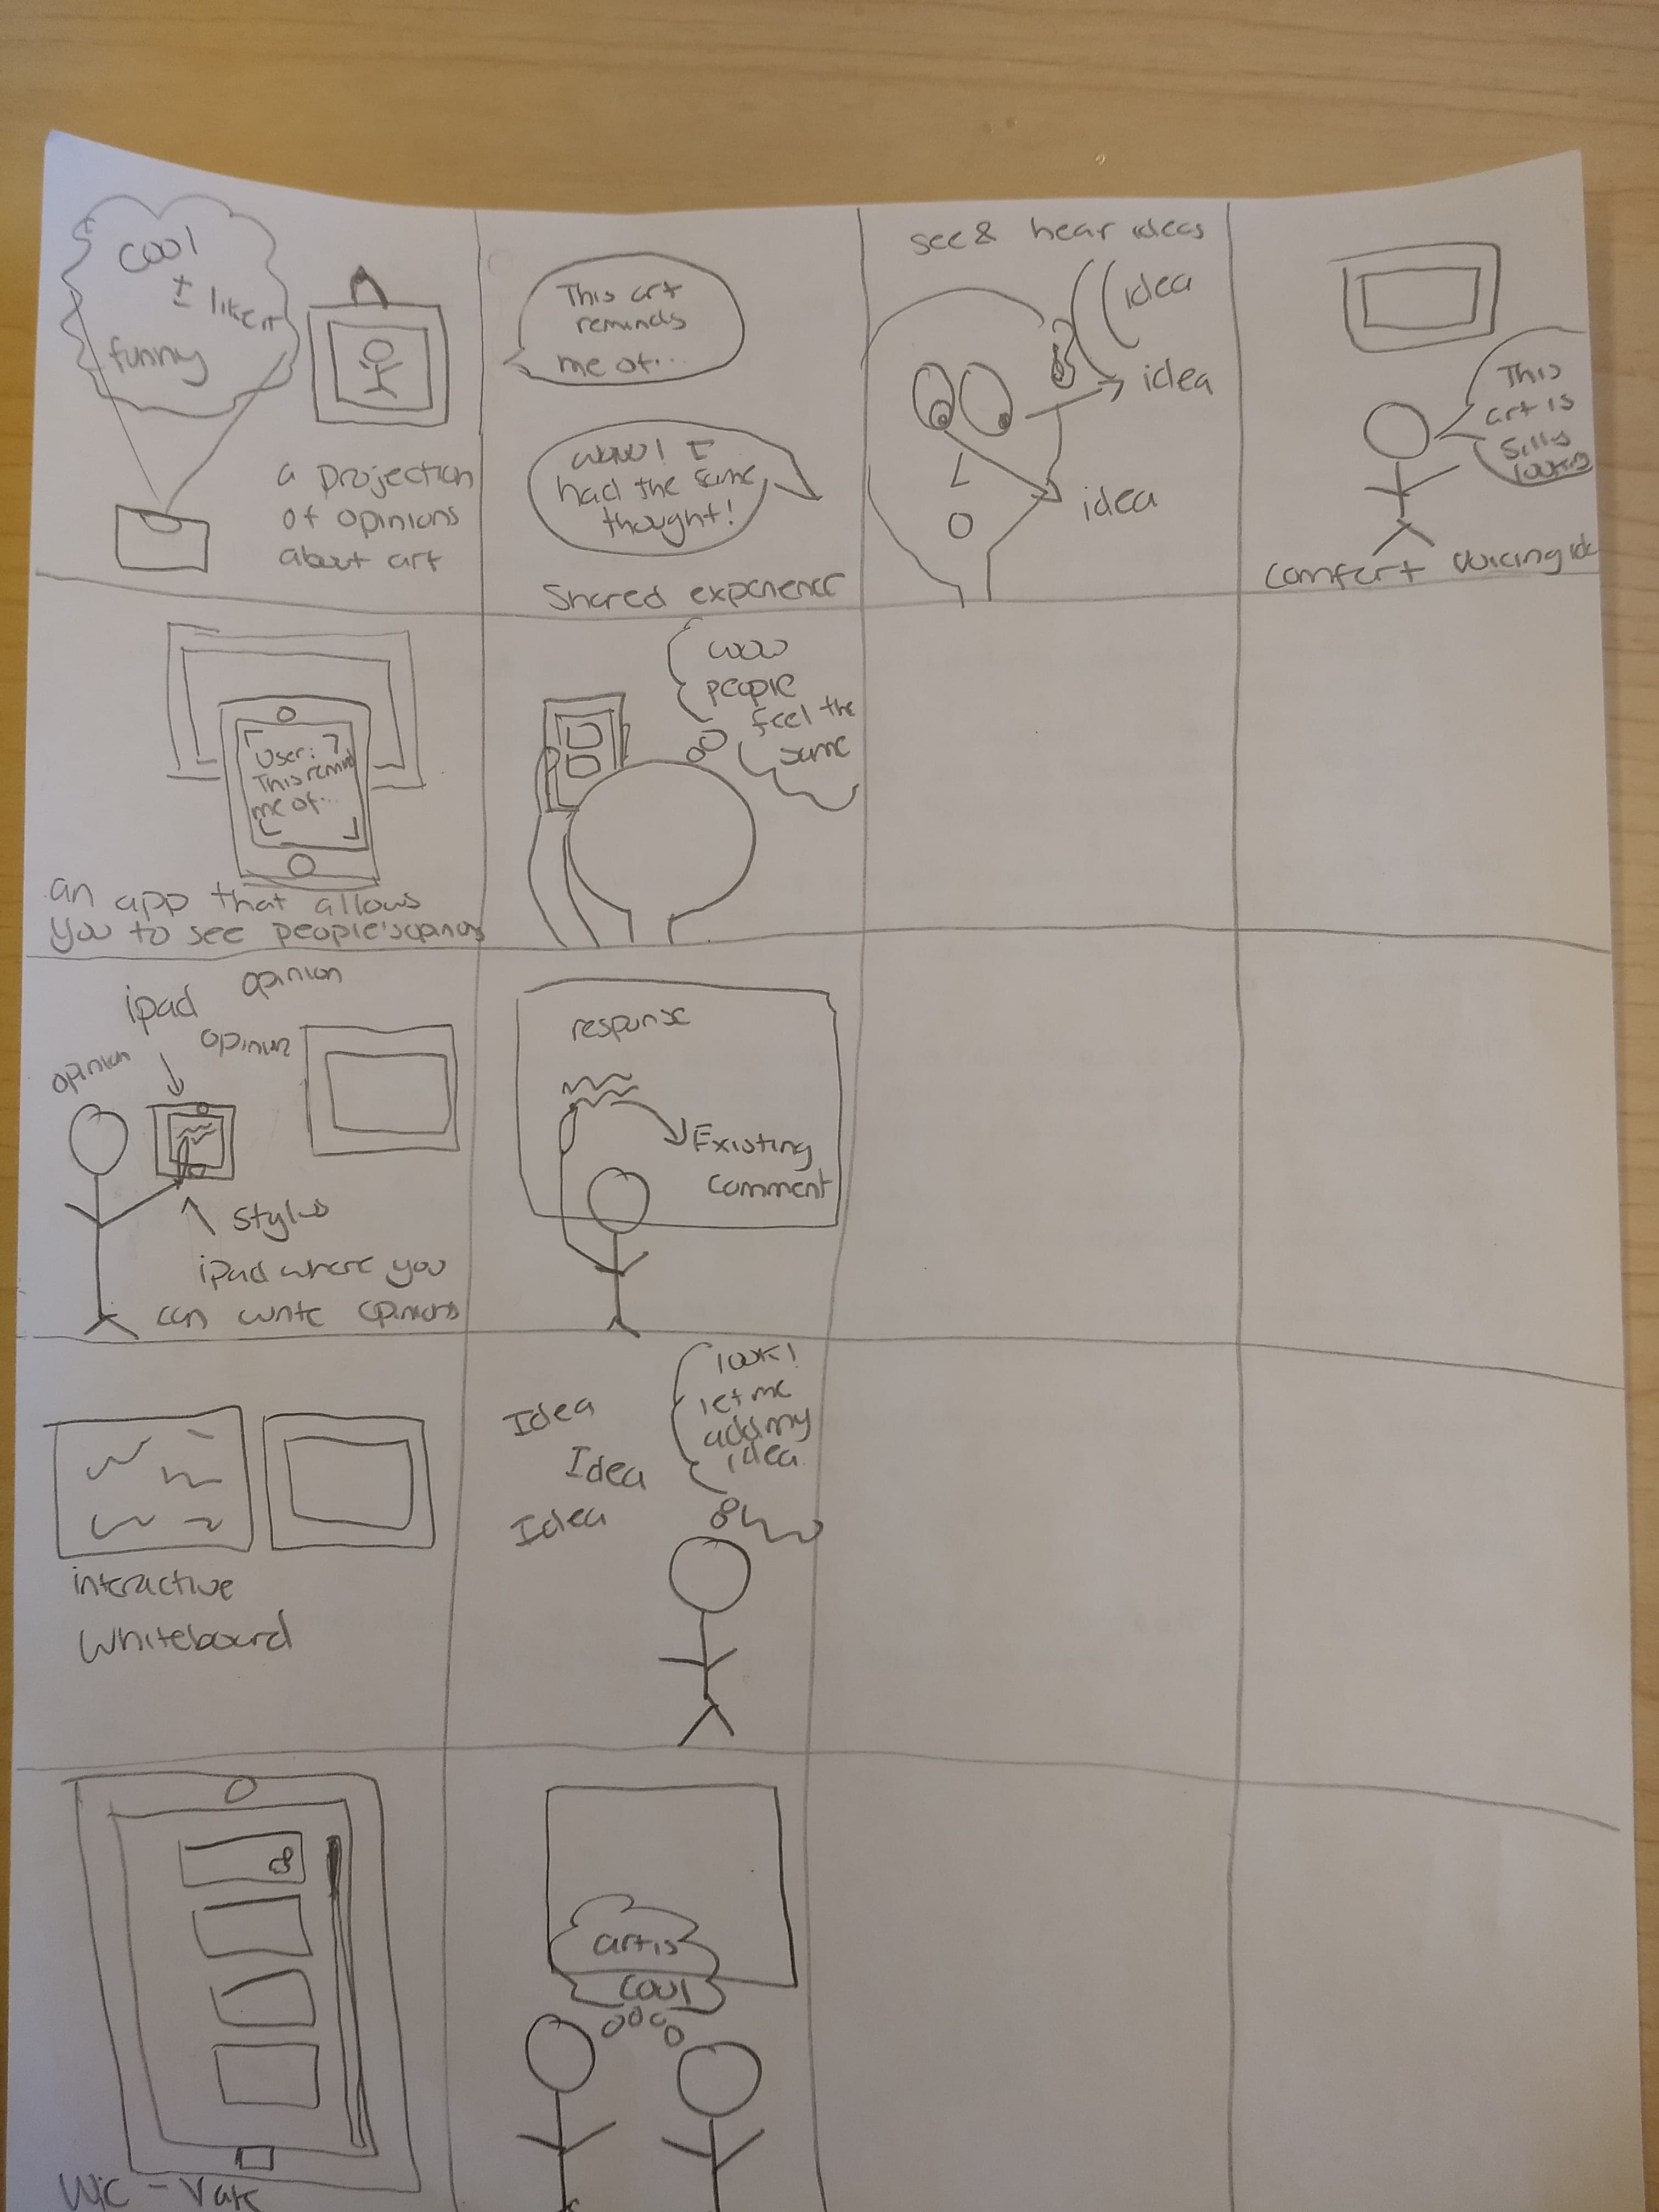 cool
I like it
funny
a projection
of opinions
about art
This art
reminds
me of...
wow! I
had the same
thought!
Shared experience
see & hear ideas
idea
idea
idea
This
art is
silly
looking
comfort voicing
User:
This remind
me of...
an app that allows
you to see people's opinions
wow
people
feel the
same
opinion
ipad
opinion
opinion
stylus
ipad where you
can write opinions
response
Existing
comment
interactive
whiteboard
Idea
Idea
Idea
look!
let me
add my
idea
art is
cool